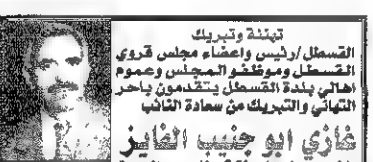 تهنئة وتبريك
القسطل/رئيس واعضاء مجلس قروي
القسطل وموظفو المجلس وعموم
اهالي بلدة القسطل يتقدمون باحر
التهاني والتبريك من سعادة النائب
غازي ابو حنيب الفايز